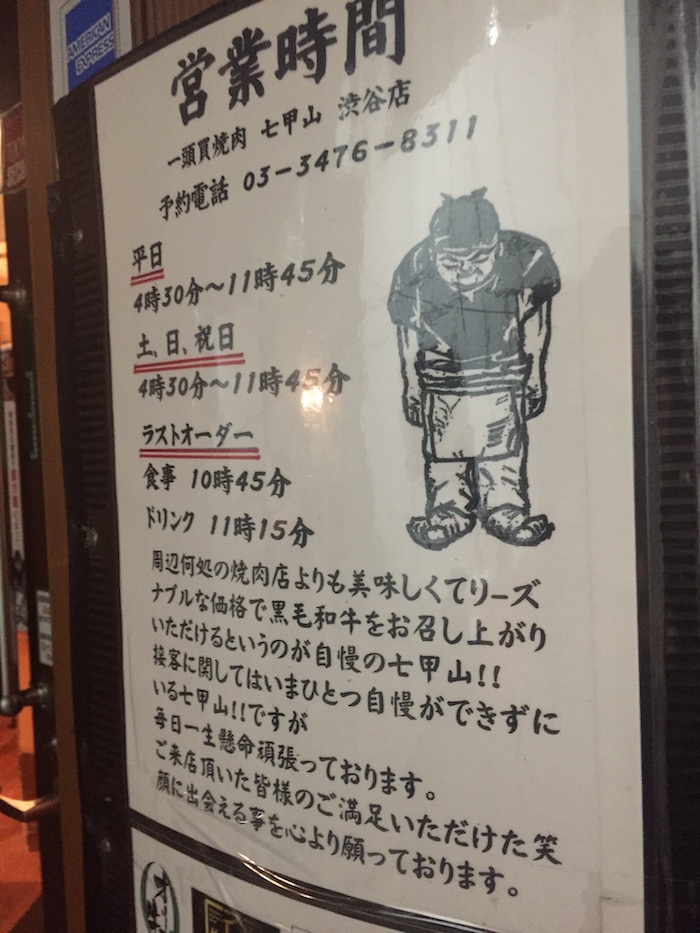 AMERICAN
EXPRESS
営業時間
一頭買焼肉 七甲山 渋谷店
予約電話 03-3476-8311
平日
4時30分〜11時45分
土、日、祝日
4時30分〜11時45分
ラストオーダー
食事 10時45分
ドリンク 11時15分
周辺何処の焼肉店よりも美味しくてリーズ
ナブルな価格で黒毛和牛をお召し上がり
いただけるというのが自慢の七甲山!!
接客に関してはいまひとつ自慢ができずに
いる七甲山!!ですが
毎日一生懸命頑張っております。
ご来店頂いた皆様のご満足いただけた笑
顔に出会える事を心より願っております。